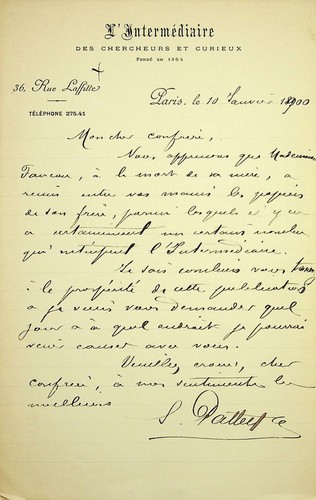 L'Intermédiaire
DES CHERCHEURS ET CURIEUX
FONDÉ EN 1864
36, Rue Laffitte
TÉLÉPHONE 275.41
Paris, le 10 Janvier 1900
Mon cher confrère,
Nous apprenons que
à la mort de sa mère, a
remis entre vos mains les papiers
de son frère, parmi lesquels il y en
a certainement un certain nombre
qui l'Intermédiaire.
Je sais combien vous
à la prospérité de cette publication
& je viens vous demander quel
jour & à quel endroit je pourrais
venir causer avec vous.
Veuillez croire, cher
confrère, à mes sentiments les
meilleurs